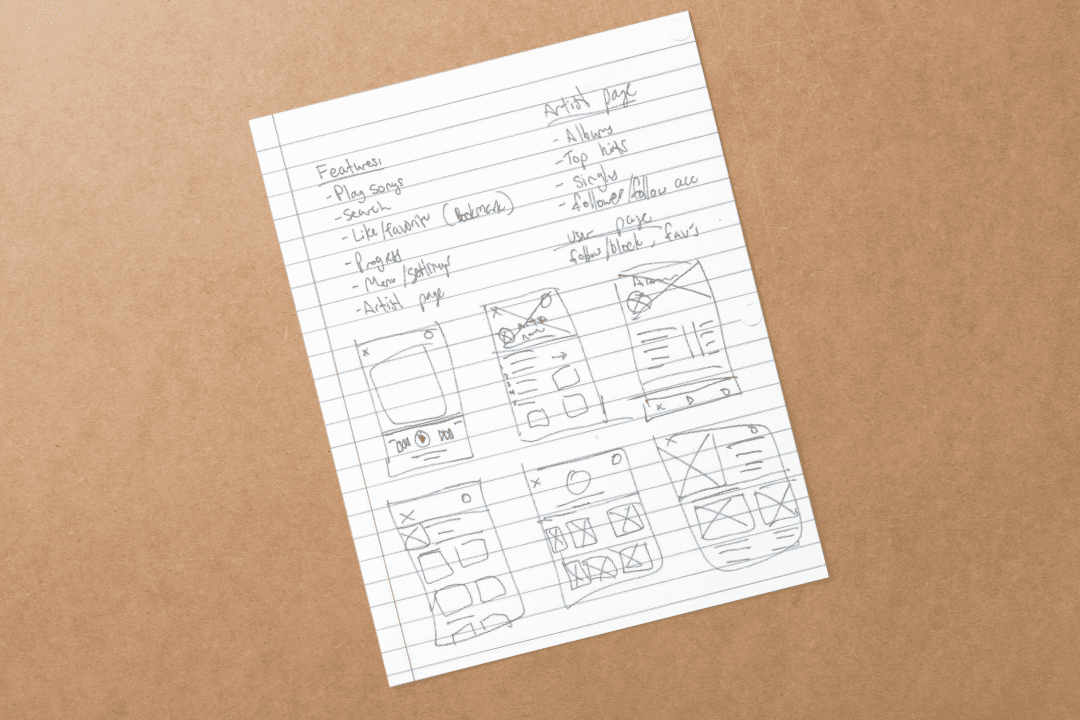 Features:
- Play songs
- Search
- Like/favorite (Bookmark)
- Progress
- Menu/settings
- Artist page
Artist page
- Albums
- Top hits
- Singles
- follower/follow acc
user page
follow/block, fav's
Artist
name